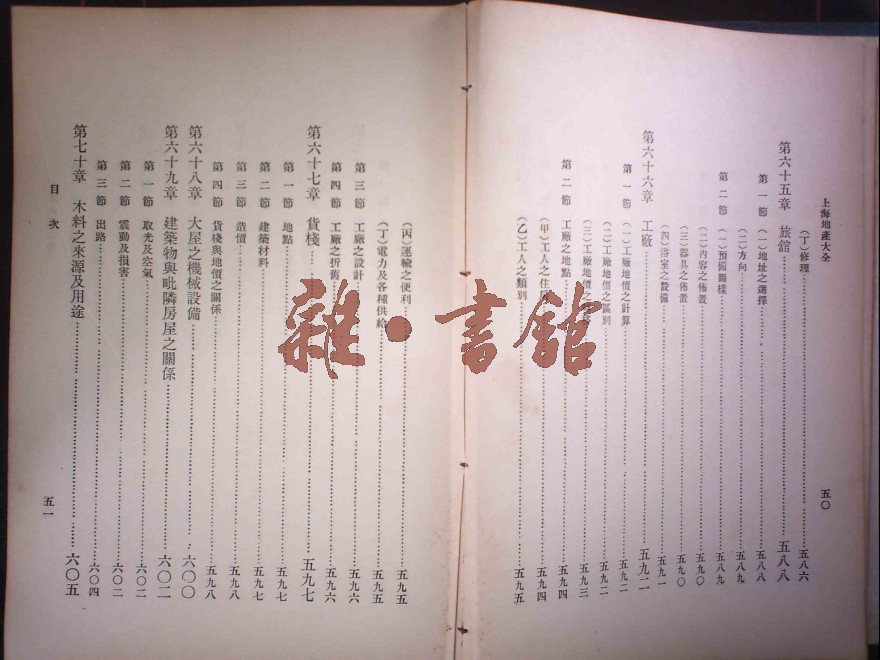 上海地產大全
五〇
(丁)修理……五八六
第六十五章 旅館……五八八
第一節 (一)地址之選擇……五八八
(二)方向……五八九
第二節 (一)預備圖樣……五八九
(二)內容之佈置……五九〇
(三)器具之佈置……五九〇
(四)浴室之設備……五九一
第六十六章 工廠……五九二
第一節 (一)工廠地價之計算……五九二
(二)工廠地價之區別……五九二
(三)工廠地價……五九三
第二節 工廠之地點……五九四
(甲)工人之住……五九四
(乙)工人之類別……五九五
(丙)運輸之便利……五九五
(丁)電力及各種供給……五九五
第三節 工廠之設計……五九六
第四節 工廠之折舊……五九六
第六十七章 貨棧……五九七
第一節 地點……五九七
第二節 建築材料……五九七
第三節 造價……五九八
第四節 貨棧與地價之關係……五九八
第六十八章 大屋之機械設備……六〇〇
第六十九章 建築物與毗隣房屋之關係……六〇二
第一節 取光及空氣……六〇二
第二節 震動及損害……六〇二
第三節 出路……六〇四
第七十章 木料之來源及用途……六〇五
目次
五一
雜·書館